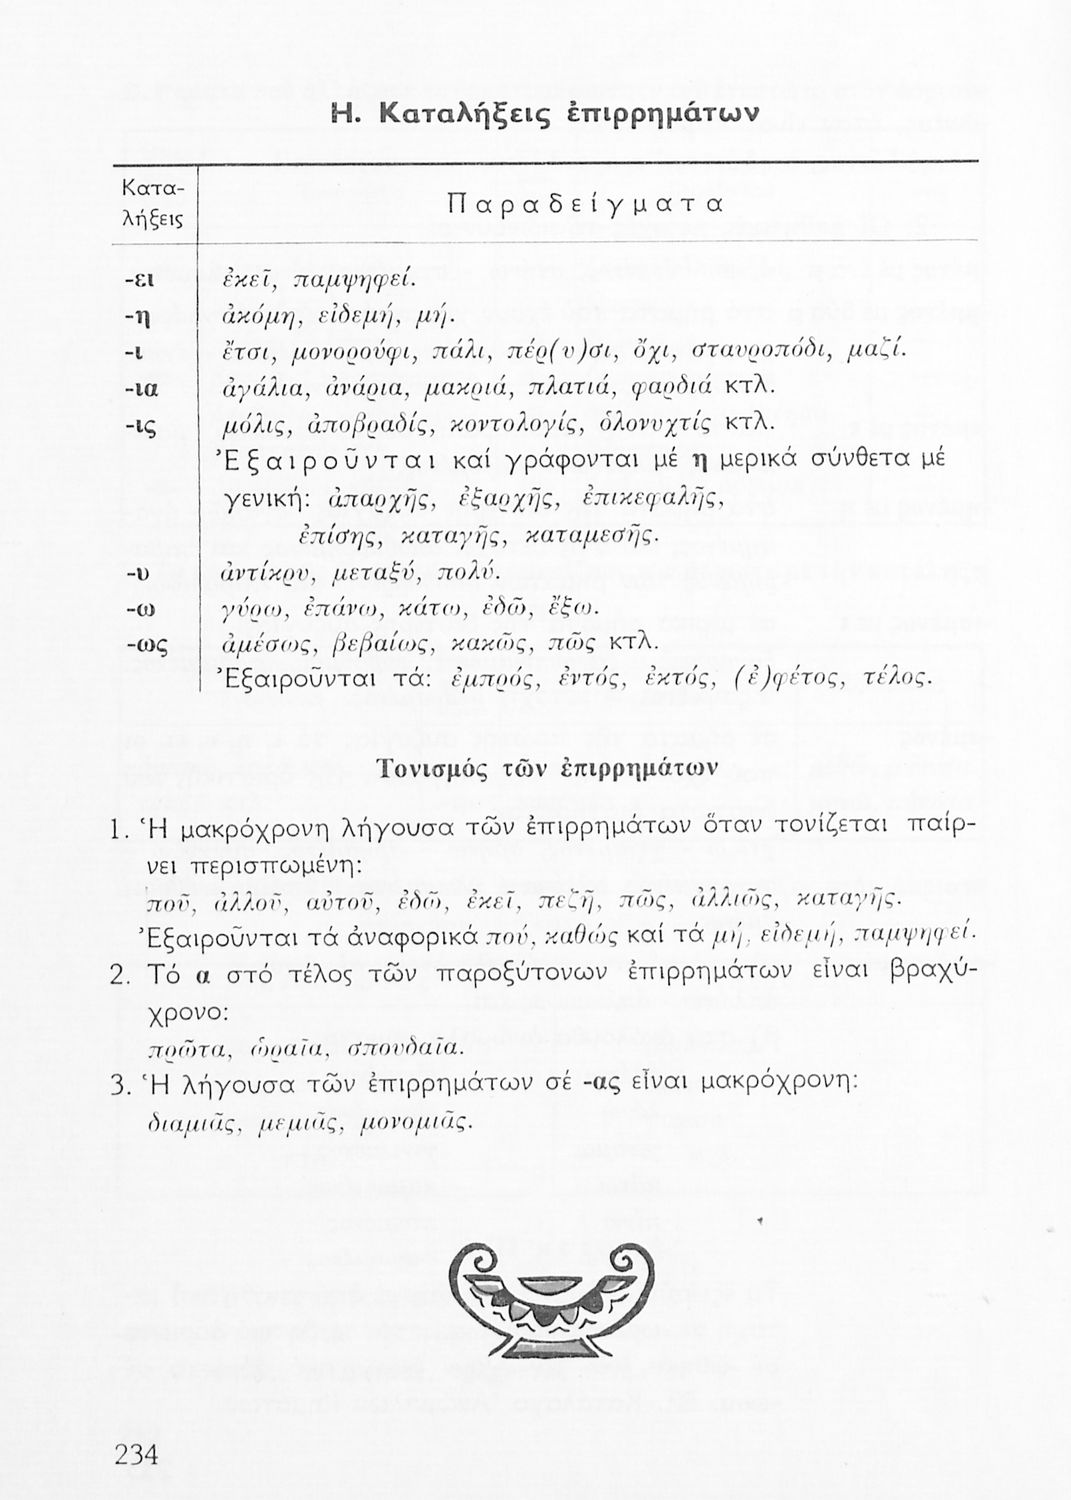 Η. Καταλήξεις ἐπιρρημάτων
Κατα-
λήξεις
Παραδείγματα
-ει ἐκεῖ, παμψηφεί.
-η ἀκόμη, εἰδεμή, μή.
-ι ἔτσι, μονορούφι, πάλι, πέρ(υ)σι, ὄχι, σταυροπόδι, μαζί.
-ια ἀγάλια, ἀνάρια, μακριά, πλατιά, φαρδιά κτλ.
-ις μόλις, ἀποβραδίς, κοντολογίς, ὁλονυχτίς κτλ.
Ἐξαιροῦνται καί γράφονται μέ η μερικά σύνθετα μέ
γενική: ἀπαρχῆς, ἐξαρχῆς, ἐπικεφαλῆς,
ἐπίσης, καταγῆς, καταμεσῆς.
-υ ἀντίκρυ, μεταξύ, πολύ.
-ω γύρω, ἐπάνω, κάτω, ἐδῶ, ἔξω.
-ως ἀμέσως, βεβαίως, κακῶς, πῶς κτλ.
Ἐξαιροῦνται τά: ἐμπρός, ἐντός, ἐκτός, (ἐ)φέτος, τέλος.
Τονισμός τῶν ἐπιρρημάτων
1. Ἡ μακρόχρονη λήγουσα τῶν ἐπιρρημάτων ὅταν τονίζεται παίρ-
νει περισπωμένη:
ποῦ, ἀλλοῦ, αὐτοῦ, ἐδῶ, ἐκεῖ, πεζῆ, πῶς, ἀλλιῶς, καταγῆς.
Ἐξαιροῦνται τά ἀναφορικά πού, καθώς καί τά μή, εἰδεμή, παμψηφεί.
2. Τό α στό τέλος τῶν παροξύτονων ἐπιρρημάτων εἶναι βραχύ-
χρονο:
πρῶτα, ὡραῖα, σπουδαῖα.
3. Ἡ λήγουσα τῶν ἐπιρρημάτων σέ -ας εἶναι μακρόχρονη:
διαμιᾶς, μεμιᾶς, μονομιᾶς.
234